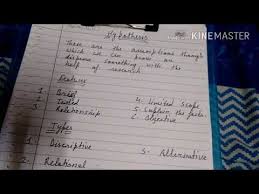 KINEMASTER
Hypothesis
These are the assumptions through
which we can prove or
disprove something with the
help of research
Features
1. Brief
2. Tested
3. Relationship
4. Limited Scope
5. Explain the facts
6. Objective
Types
1. Discriptive
2. Relational
3. Alternative